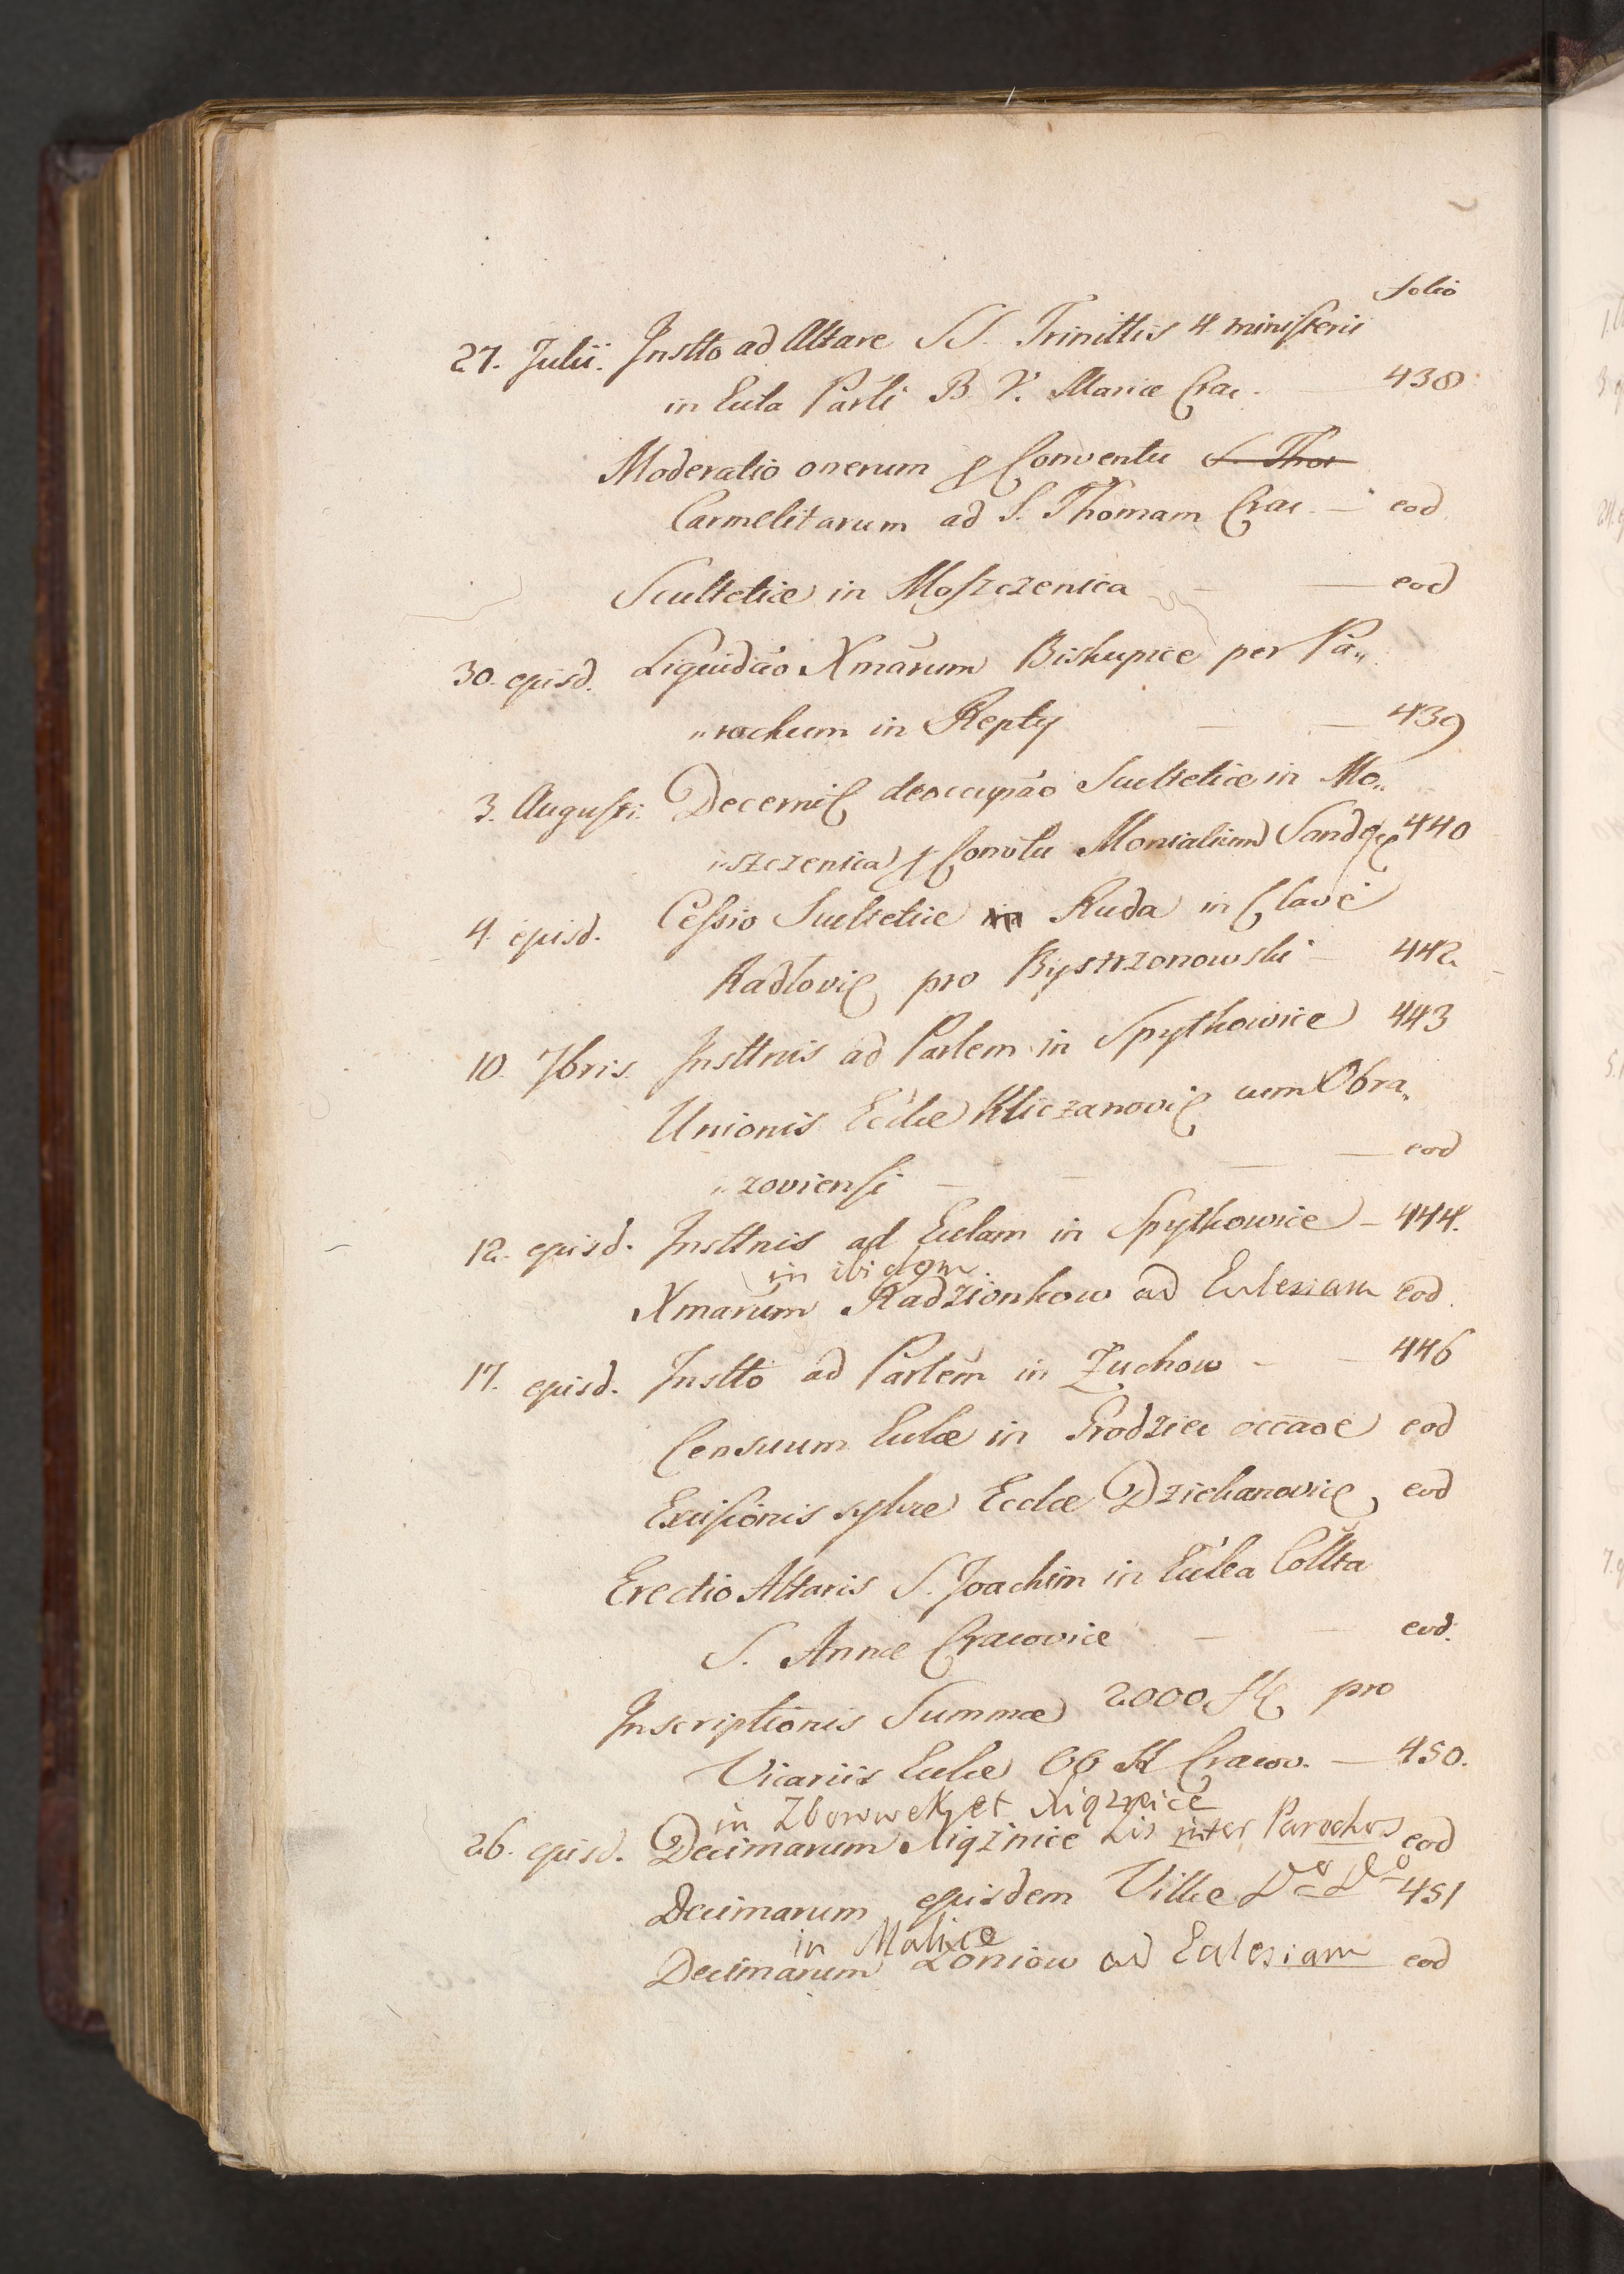 folio
27. Julii. Instto ad Altare SS. Trinittis 4 ministerii
in Eccla Parli B. V. Mariæ Crac. 438
Moderatio onerum p Conventu S. Thos
Carmelitarum ad S. Thomam Crac. — eod
Scultetiæ in Moszczenica — eod
30. ejusd. Liquidăo Xmărum Biskupice per Pa„
„rochum in Repty — — 439
3. Augusti. Decernit deoccupăo Scultetiæ in Mo„
„szczenica p Convtu Monialium Sandec 440
4. ejusd. Cessio Scultetiæ in Ruda in Clave
Radlovi pro Bystrzonowski — 442
10. 7bris. Insttnis ad Parlem in Spytkowice 443
Unionis Ecclæ Kliczanovi cum Obra„
„zoviensi — — — — eod
12. ejusd. Insttnis ad Ecclam in Spytkowice — 444.
in ibidem
Xmarum Radzionkow ad Eclesiam eod.
17. ejusd. Instto ad Parlem in Zuchow — — 446
Censuum Ecclæ in Grodziec occăoe eod
Excisionis sylvæ Ecclæ Dziekanovic eod
Erectio Altaris S. Joachim in Ecclea Collta
S. Annæ Cracoviæ — — eod.
Inscriptionis Summæ 2000 fl pro
Vicariis Ecclæ OO SS Cracov. — 450.
in Zborowek et Xiąznice
26. ejusd. Decimarum Xiąznice Lis inter Parochos eod
Decimarum ejusdem Villæ 451
in Malice
Decimarum Łoniow ad Eclesiam eod